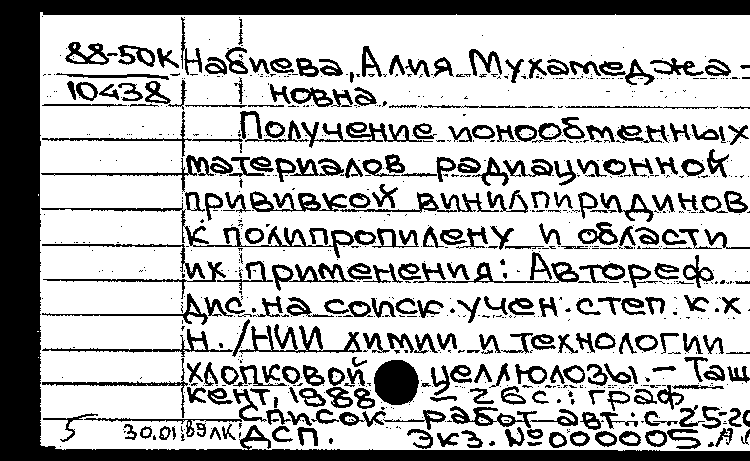 88-50К Набиева, Алия Мухамеджа-
10438 новна.
Получение ионообменных
материалов радиационной
прививкой винилпиридинов
к полипропилену и области
их применения: Автореф.
дис. на соиск. учен. степ. к.х.
н. /НИИ химии и технологии
хлопковой целлюлозы. – Таш
кент, 1988 – 26 с.: граф
список работ авт.: с. 25-26
5 30.01.89 ЛК ДСП. Экз. №000005.